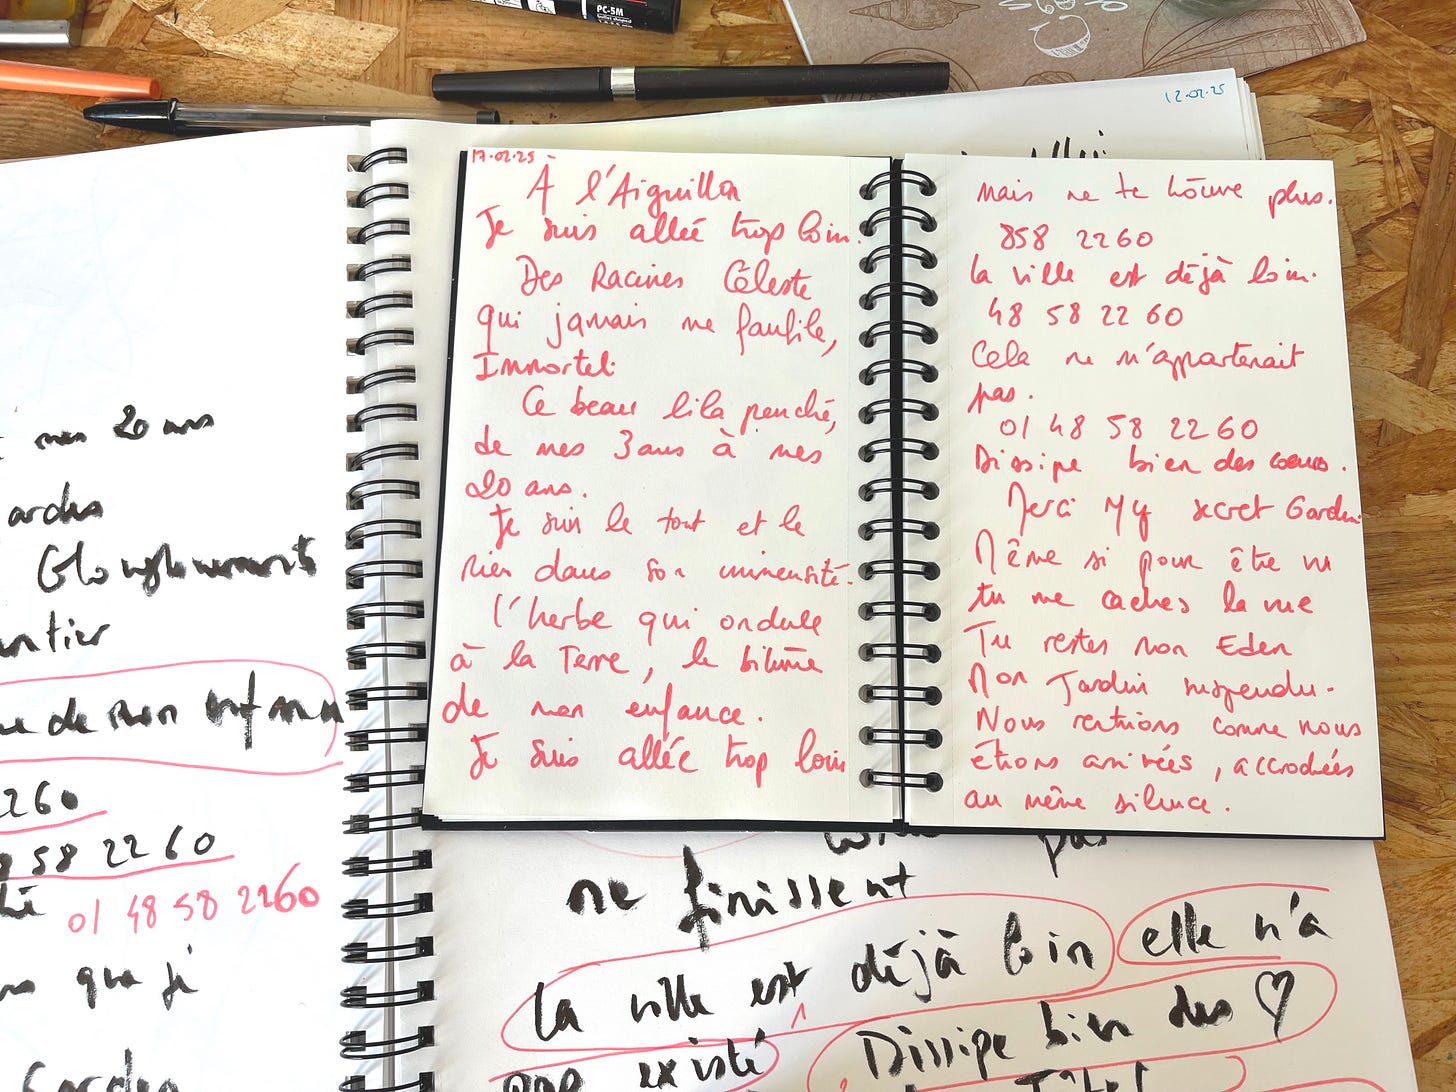 PC-5M
12.02.25
mes 20 ans
ardes
de mon enfan
260
8 58 22 60
01 48 58 2260
que j
17.02.25
À l'Aiguillon
Je suis allée trop loin.
Des Racines Céleste
qui jamais ne faufile,
Immortel.
Ce beau lila penché,
de mes 3 ans à mes
20 ans.
Je suis le tout et le
rien dans son immensité.
l'herbe qui ondule
à la Terre, le bitume
de mon enfance.
Je suis allée trop loin
mais ne te trouve plus.
858 2260
la ville est déjà loin.
48 58 22 60
Cela ne m'appartenait
pas.
01 48 58 22 60
Dissipe bien des coeurs.
Merci My secret Garden
Même si pour être vu
tu me caches la vue
Tu restes mon Eden
Mon Jardin suspendu.
Nous rentrions comme nous
étions arrivées, accrochées
au même silence.
pas
ne finissent
la ville est déjà loin elle n'a
pas existé Dissipe bien des ♡